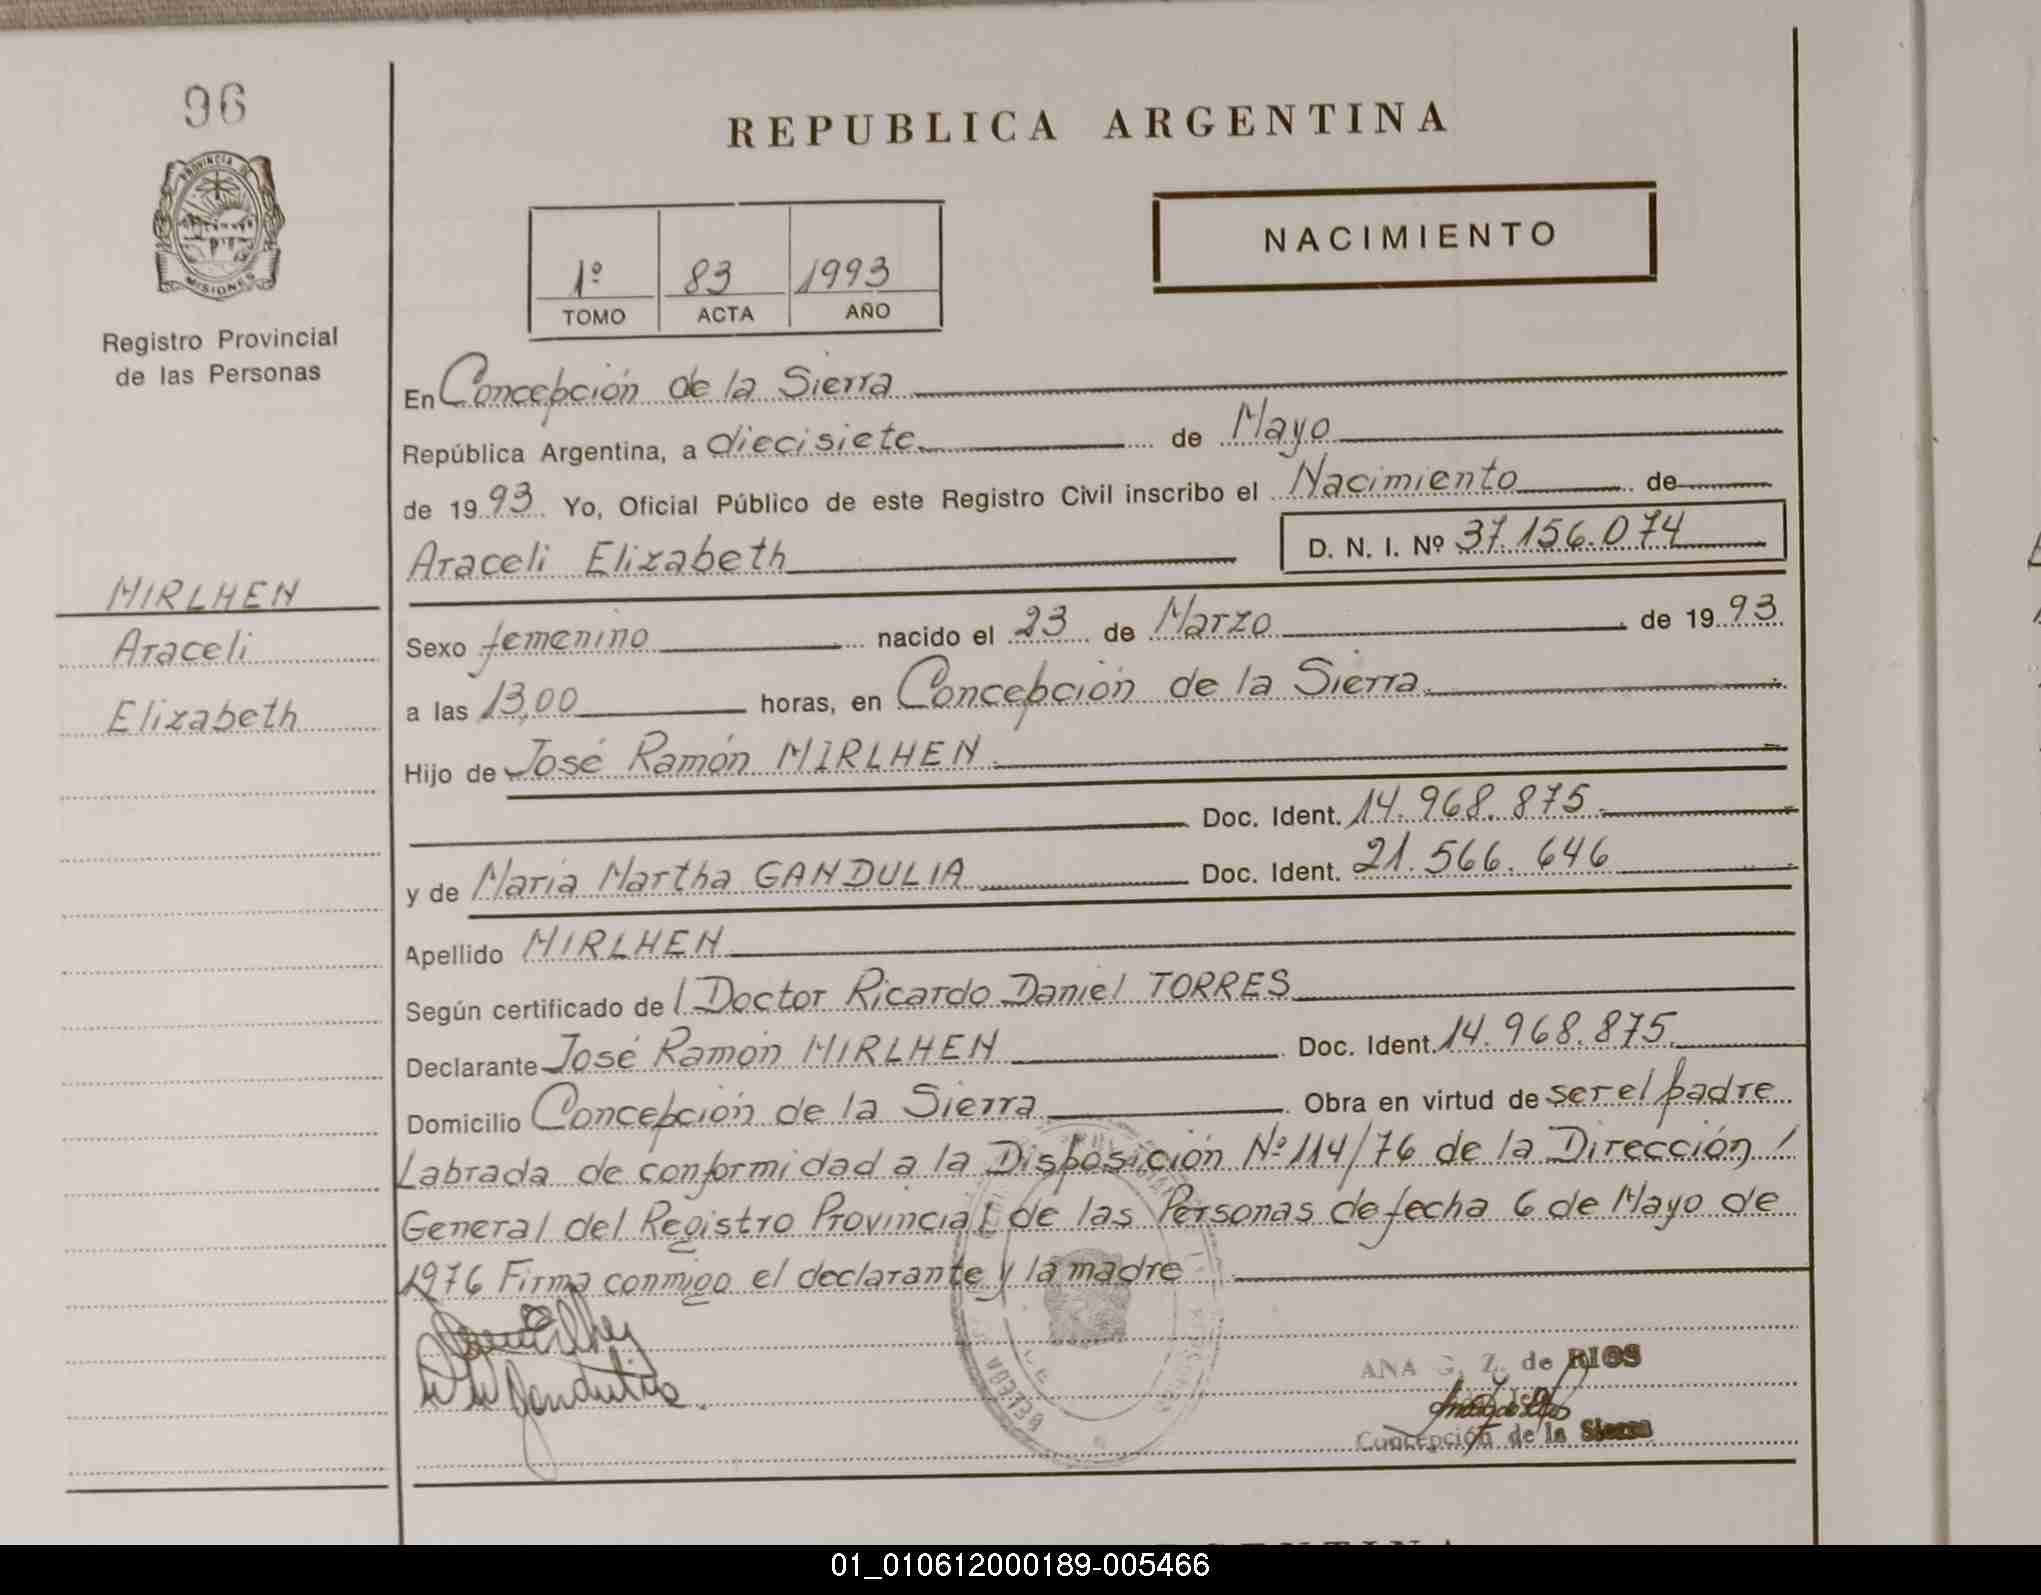 96
REPUBLICA ARGENTINA
PROVINCIA DE
MISIONES
Registro Provincial
de las Personas
NACIMIENTO
1º 83 1993
TOMO ACTA AÑO
En Concepción de la Sierra
República Argentina, a diecisiete de Mayo
de 1993 Yo, Oficial Público de este Registro Civil inscribo el Nacimiento de
Araceli Elizabeth D. N. I. Nº 37.156.074
MIRLHEN
Araceli
Elizabeth
Sexo femenino nacido el 23 de Marzo de 1993
a las 13,00 horas, en Concepción de la Sierra
Hijo de José Ramón MIRLHEN
Doc. Ident. 14.968.875
y de María Martha GANDULIA Doc. Ident. 21.566.646
Apellido MIRLHEN
Según certificado del Doctor Ricardo Daniel TORRES
Declarante José Ramón MIRLHEN Doc. Ident. 14.968.875
Domicilio Concepción de la Sierra Obra en virtud de ser el padre
Labrada de conformidad a la Disposición Nº 114/76 de la Dirección/
General del Registro Provincial de las Personas de fecha 6 de Mayo de
1976 Firma conmigo el declarante y la madre
ANA de RIOS
Concepción de la Sierra
01_010612000189-005466